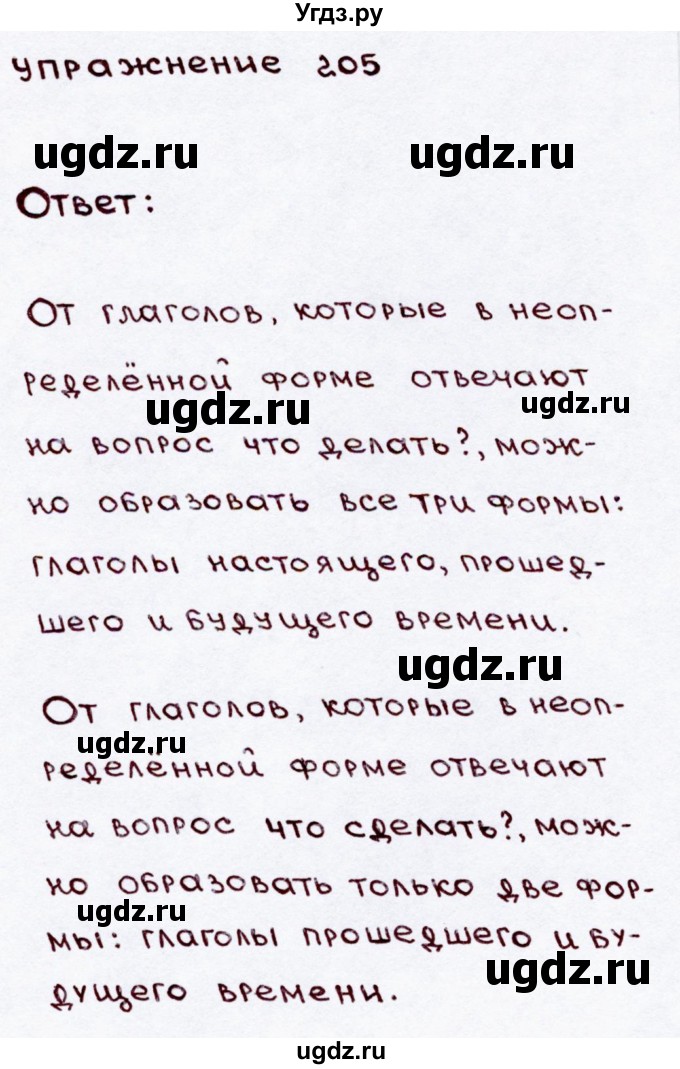 Угдз.ру
упражнение 205
ugdz.ru ugdz.ru
Ответ:
От глаголов, которые в неоп-
ределённой форме отвечают
ugdz.ru ugdz.ru
на вопрос что делать?, мож-
но образовать все три формы:
глаголы настоящего, прошед-
шего и будущего времени.
ugdz.ru
От глаголов, которые в неоп-
ugdz.ru
ределённой форме отвечают
на вопрос что сделать?, мож-
но образовать только две фор-
ugdz.ru
мы: глаголы прошедшего и бу-
ugdz.ru
дущего времени.
ugdz.ru